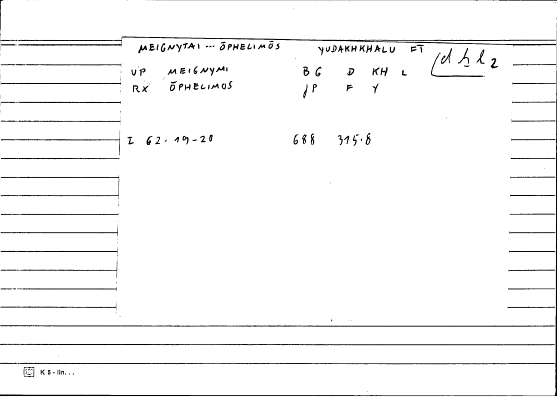 MEIGNYTAI ... ŌPHELIMŌS YUDAKHKHALU FĪ
d ḫ l 2
VP MEIGNYMI BG D KH L
RX ŌPHELIMOS JP F Y
I 62.19-20 688 315.8
K 5 - lin...